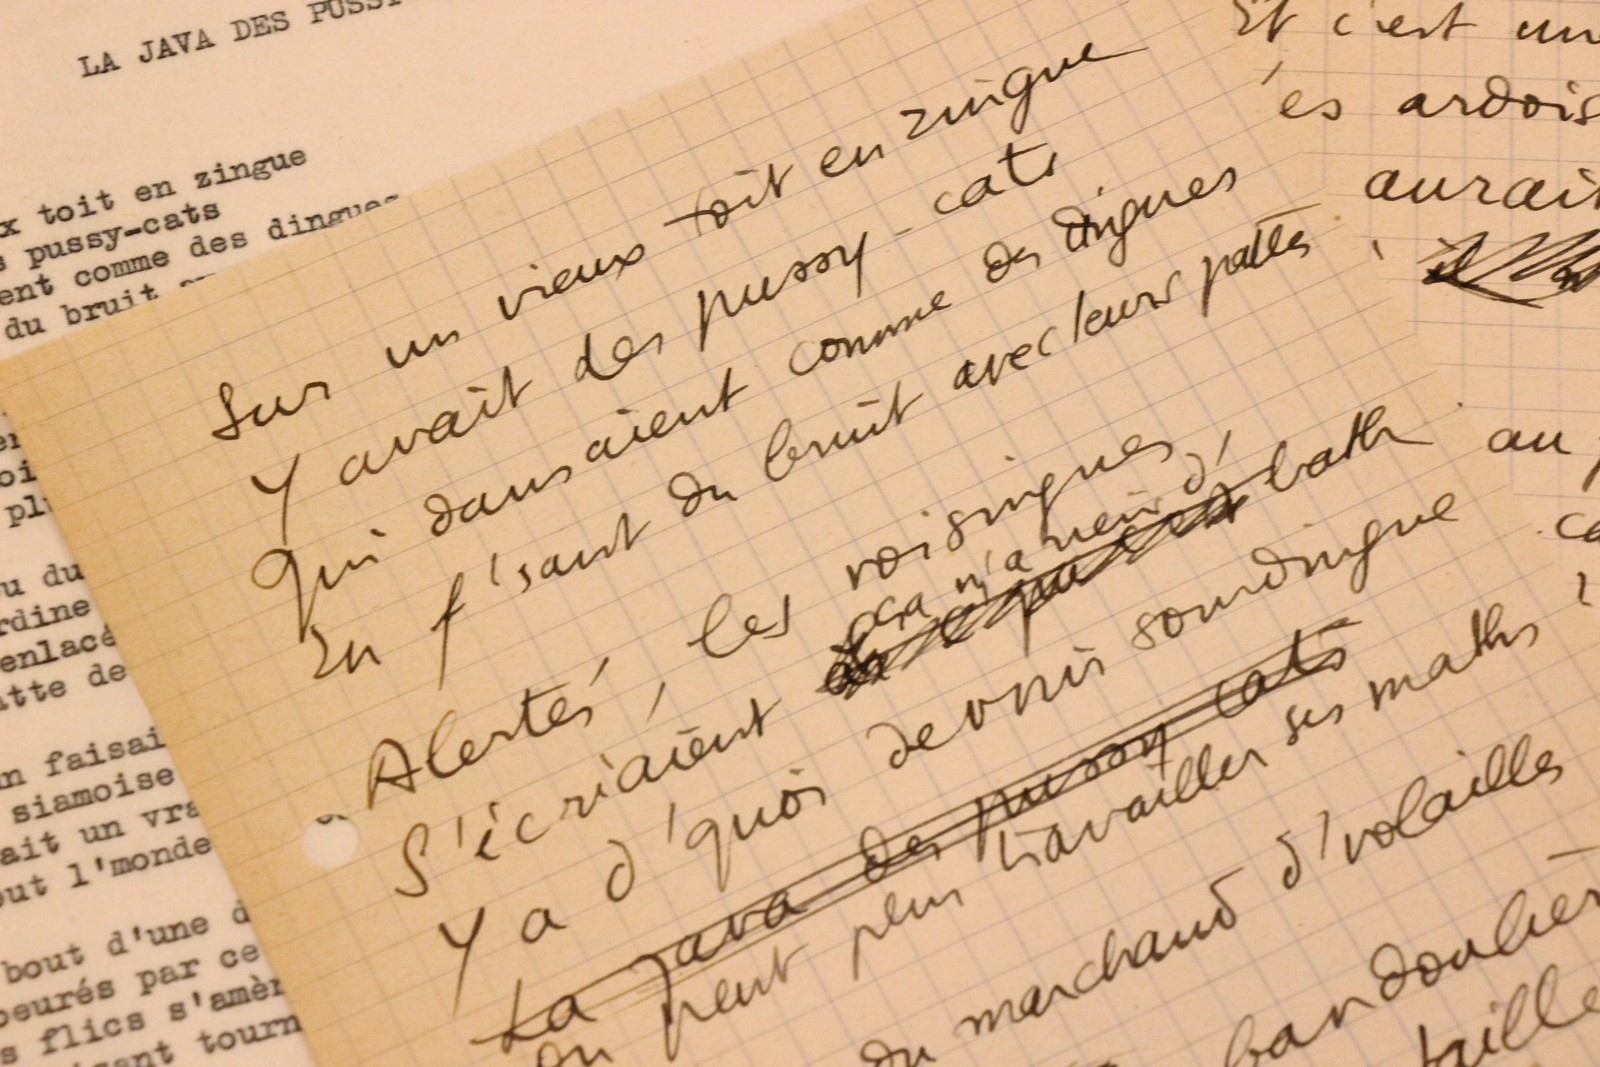 LA JAVA DES PUSSY
x toit en zingue
s pussy-cats
ent comme des dingues
du bruit
plu
u du
rdine
enlacé
atte de
n faisai
siamoise
ait un vra
out l'monde
bout d'une d
peurés par ce
s flics s'amèn
isant tourn
Sur un vieux toit en zingue
Y avait des pussy-cats
Qui dansaient comme des dingues
En f'sant du bruit avec leurs pattes
Alertés, les voisingues,
S'écriaient ça n'a rien d' bath
Y a d'quoi devenir sourdingue
La Java des pussy cats
On peut plus travailler ses maths
du marchand d'volailles
bandoulièr
taille
Et c'est un
és ardois
aurait
au
ca